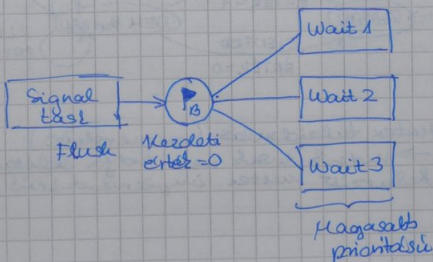 Signal
task
Flush
B
Kezdeti
érték=0
Wait 1
Wait 2
Wait 3
Magasabb
prioritású